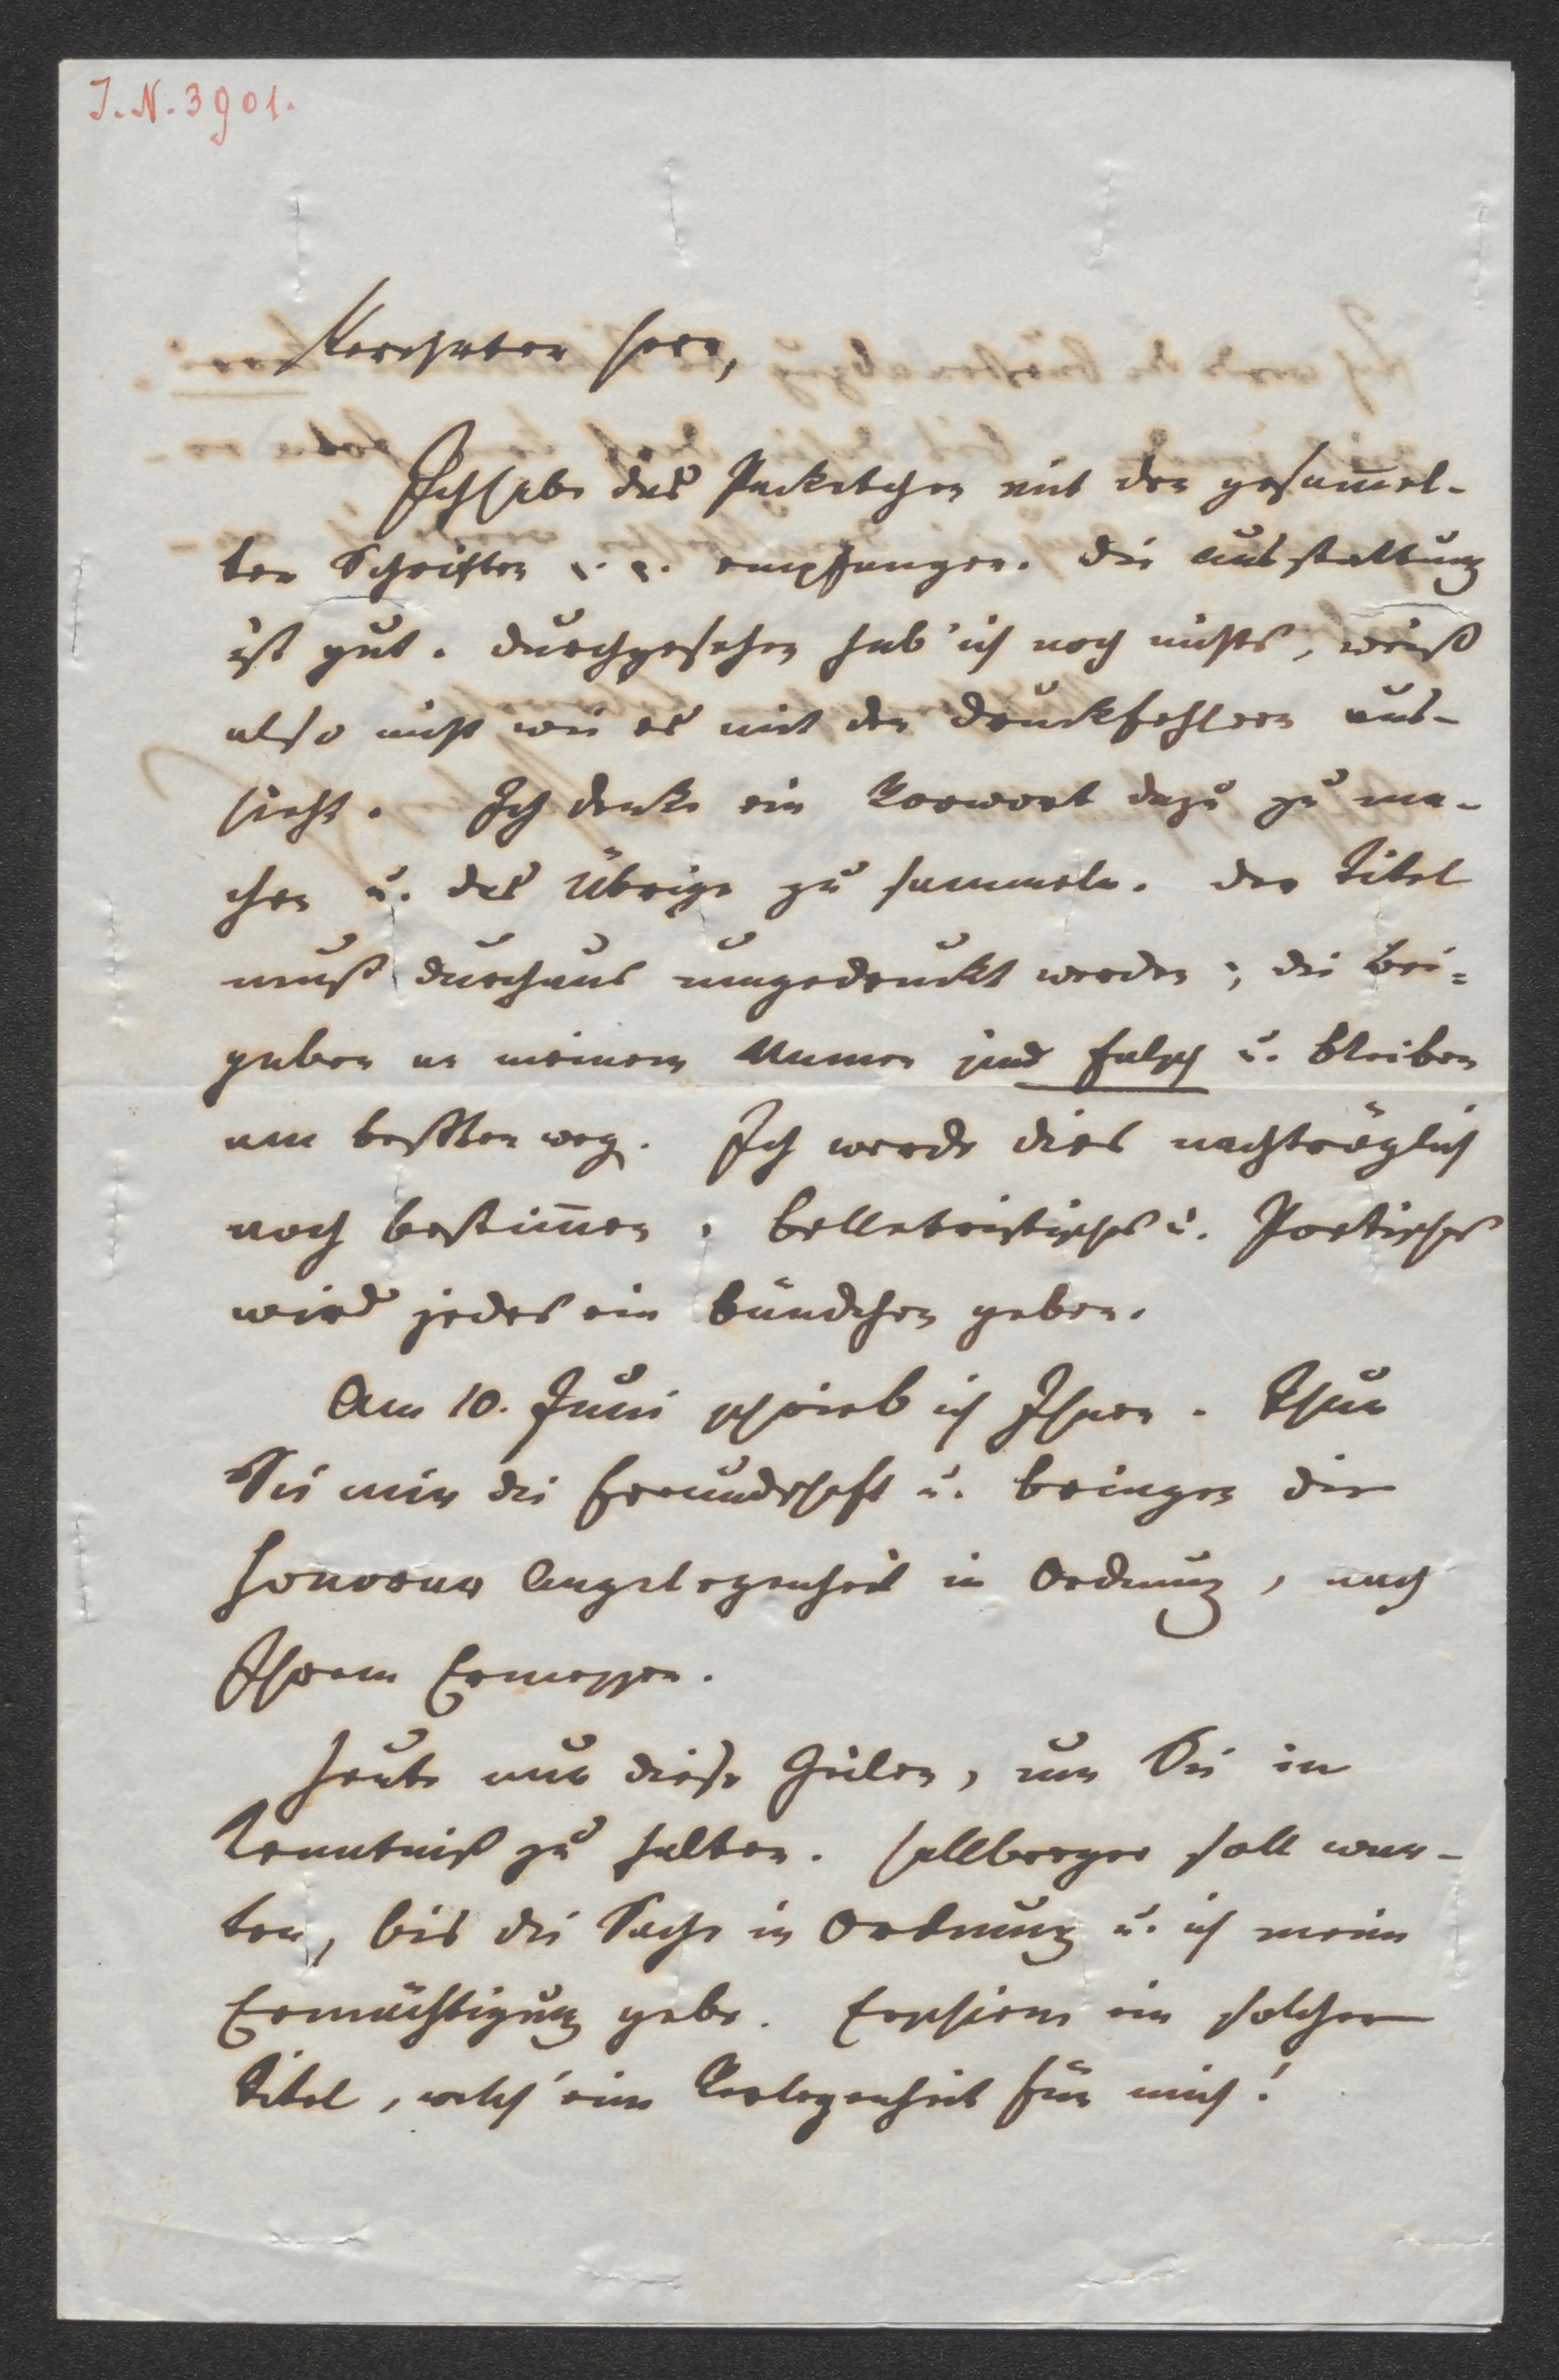 J. N. 3901.
Verehrter Herr,
Ich habe das Packetchen mit den gesam̅el-
ten Schriften r. r. empfangen. Die Ausstattung
ist gut. Durchgesehen hab' ich noch nichts, weiß
also nicht wie es mit den Druckfehlern aus-
sieht. Ich denke ein Vorwort dazu zu ma-
chen u. das Übrige zu sammeln. Der Titel
muß durchaus umgedruckt werden; die Bei-
gaben an meinem Namen sind falsch u. bleiben
am besten weg. Ich werde dies nachträglich
noch bestim̅en. Belletristisches u. Poetisches
wird jedes ein Bändchen geben.
Am 10. Juni schrieb ich Ihnen. Thun
Sie mir die Freundschaft u. bringen die
Honorar Angelegenheit in Ordnung, nach
Ihrem Ermessen.
Heute nur diese Zeilen, um Sie in
Kenntniß zu halten. Hallberger soll war-
ten, bis die Sache in Ordnung u. ich meine
Ermächtigung gebe. Erschiene ein solcher
Titel, welch' eine Verlegenheit für mich!